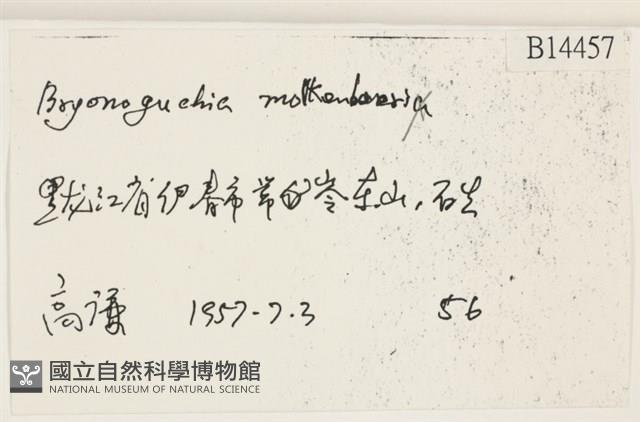 B14457
Bryonoguchia molkenboeri
黑龙江省伊春市带岭东山,石生
高谦 1957-7.3 56
國立自然科學博物館
NATIONAL MUSEUM OF NATURAL SCIENCE